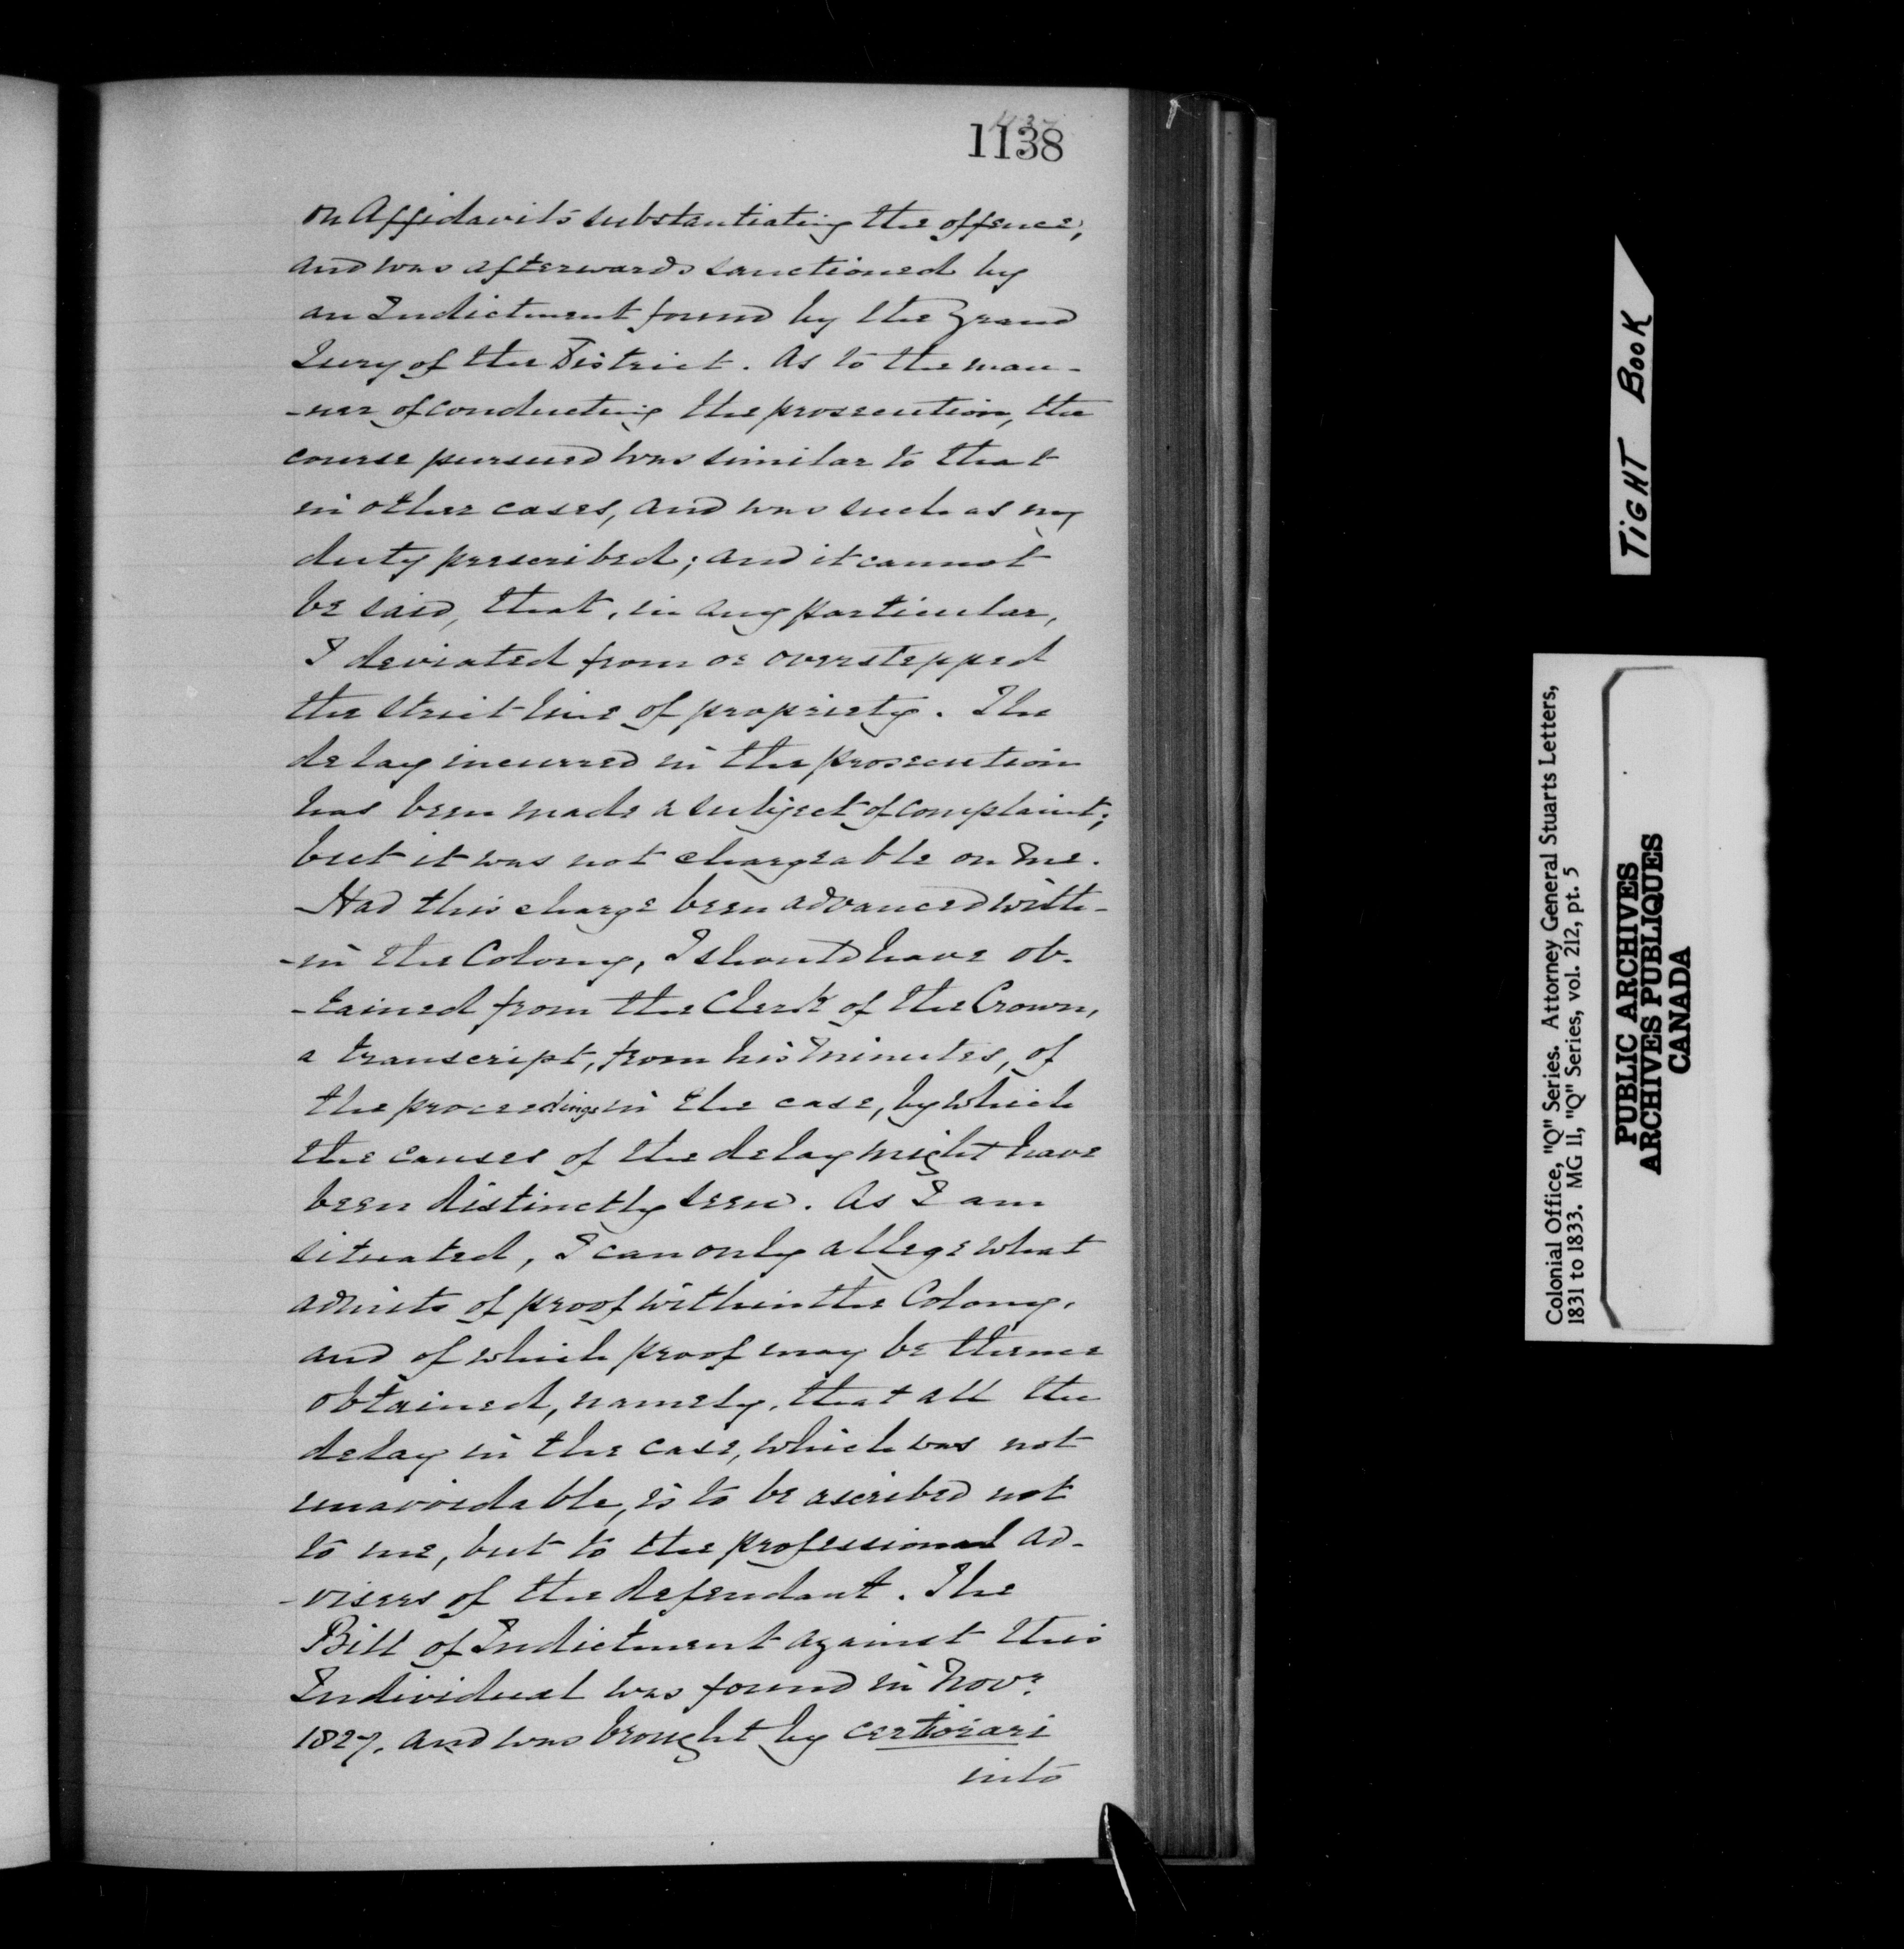 1138
on Affidavits substantiating the offence;
and was afterwards sanctioned by
an Indictment found by the Grand
Jury of the District. As to the man-
-ner of conducting the prosecution, the
course pursued was similar to that
in other cases, and was such as my
duty prescribed; and it cannot
be said, that, in any particular,
I deviated from or overstepped
the strict line of propriety. The
delay incurred in the prosecution
has been made a subject of complaint;
but it was not chargeable on me.
Had this charge been advanced with-
-in the Colony, I should have ob-
-tained from the Clerk of the Crown,
a transcript, from his minutes, of
the proceedings in the case, by which
the causes of the delay might have
been distinctly seen. As I am
situated, I can only allege what
admits of proof within the Colony,
and of which proof may be thence
obtained, namely, that all the
delay in the case, which was not
unavoidable, is to be ascribed not
to me, but to the professional ad-
-visers of the defendant. The
Bill of Indictment against this
Individual was found in Novr.
1827. and was brought by certiorari
into
TIGHT BOOK
Colonial Office, "Q" Series. Attorney General Stuarts Letters,
1831 to 1833. MG 11, "Q" Series, vol. 212, pt. 5
PUBLIC ARCHIVES
ARCHIVES PUBLIQUES
CANADA